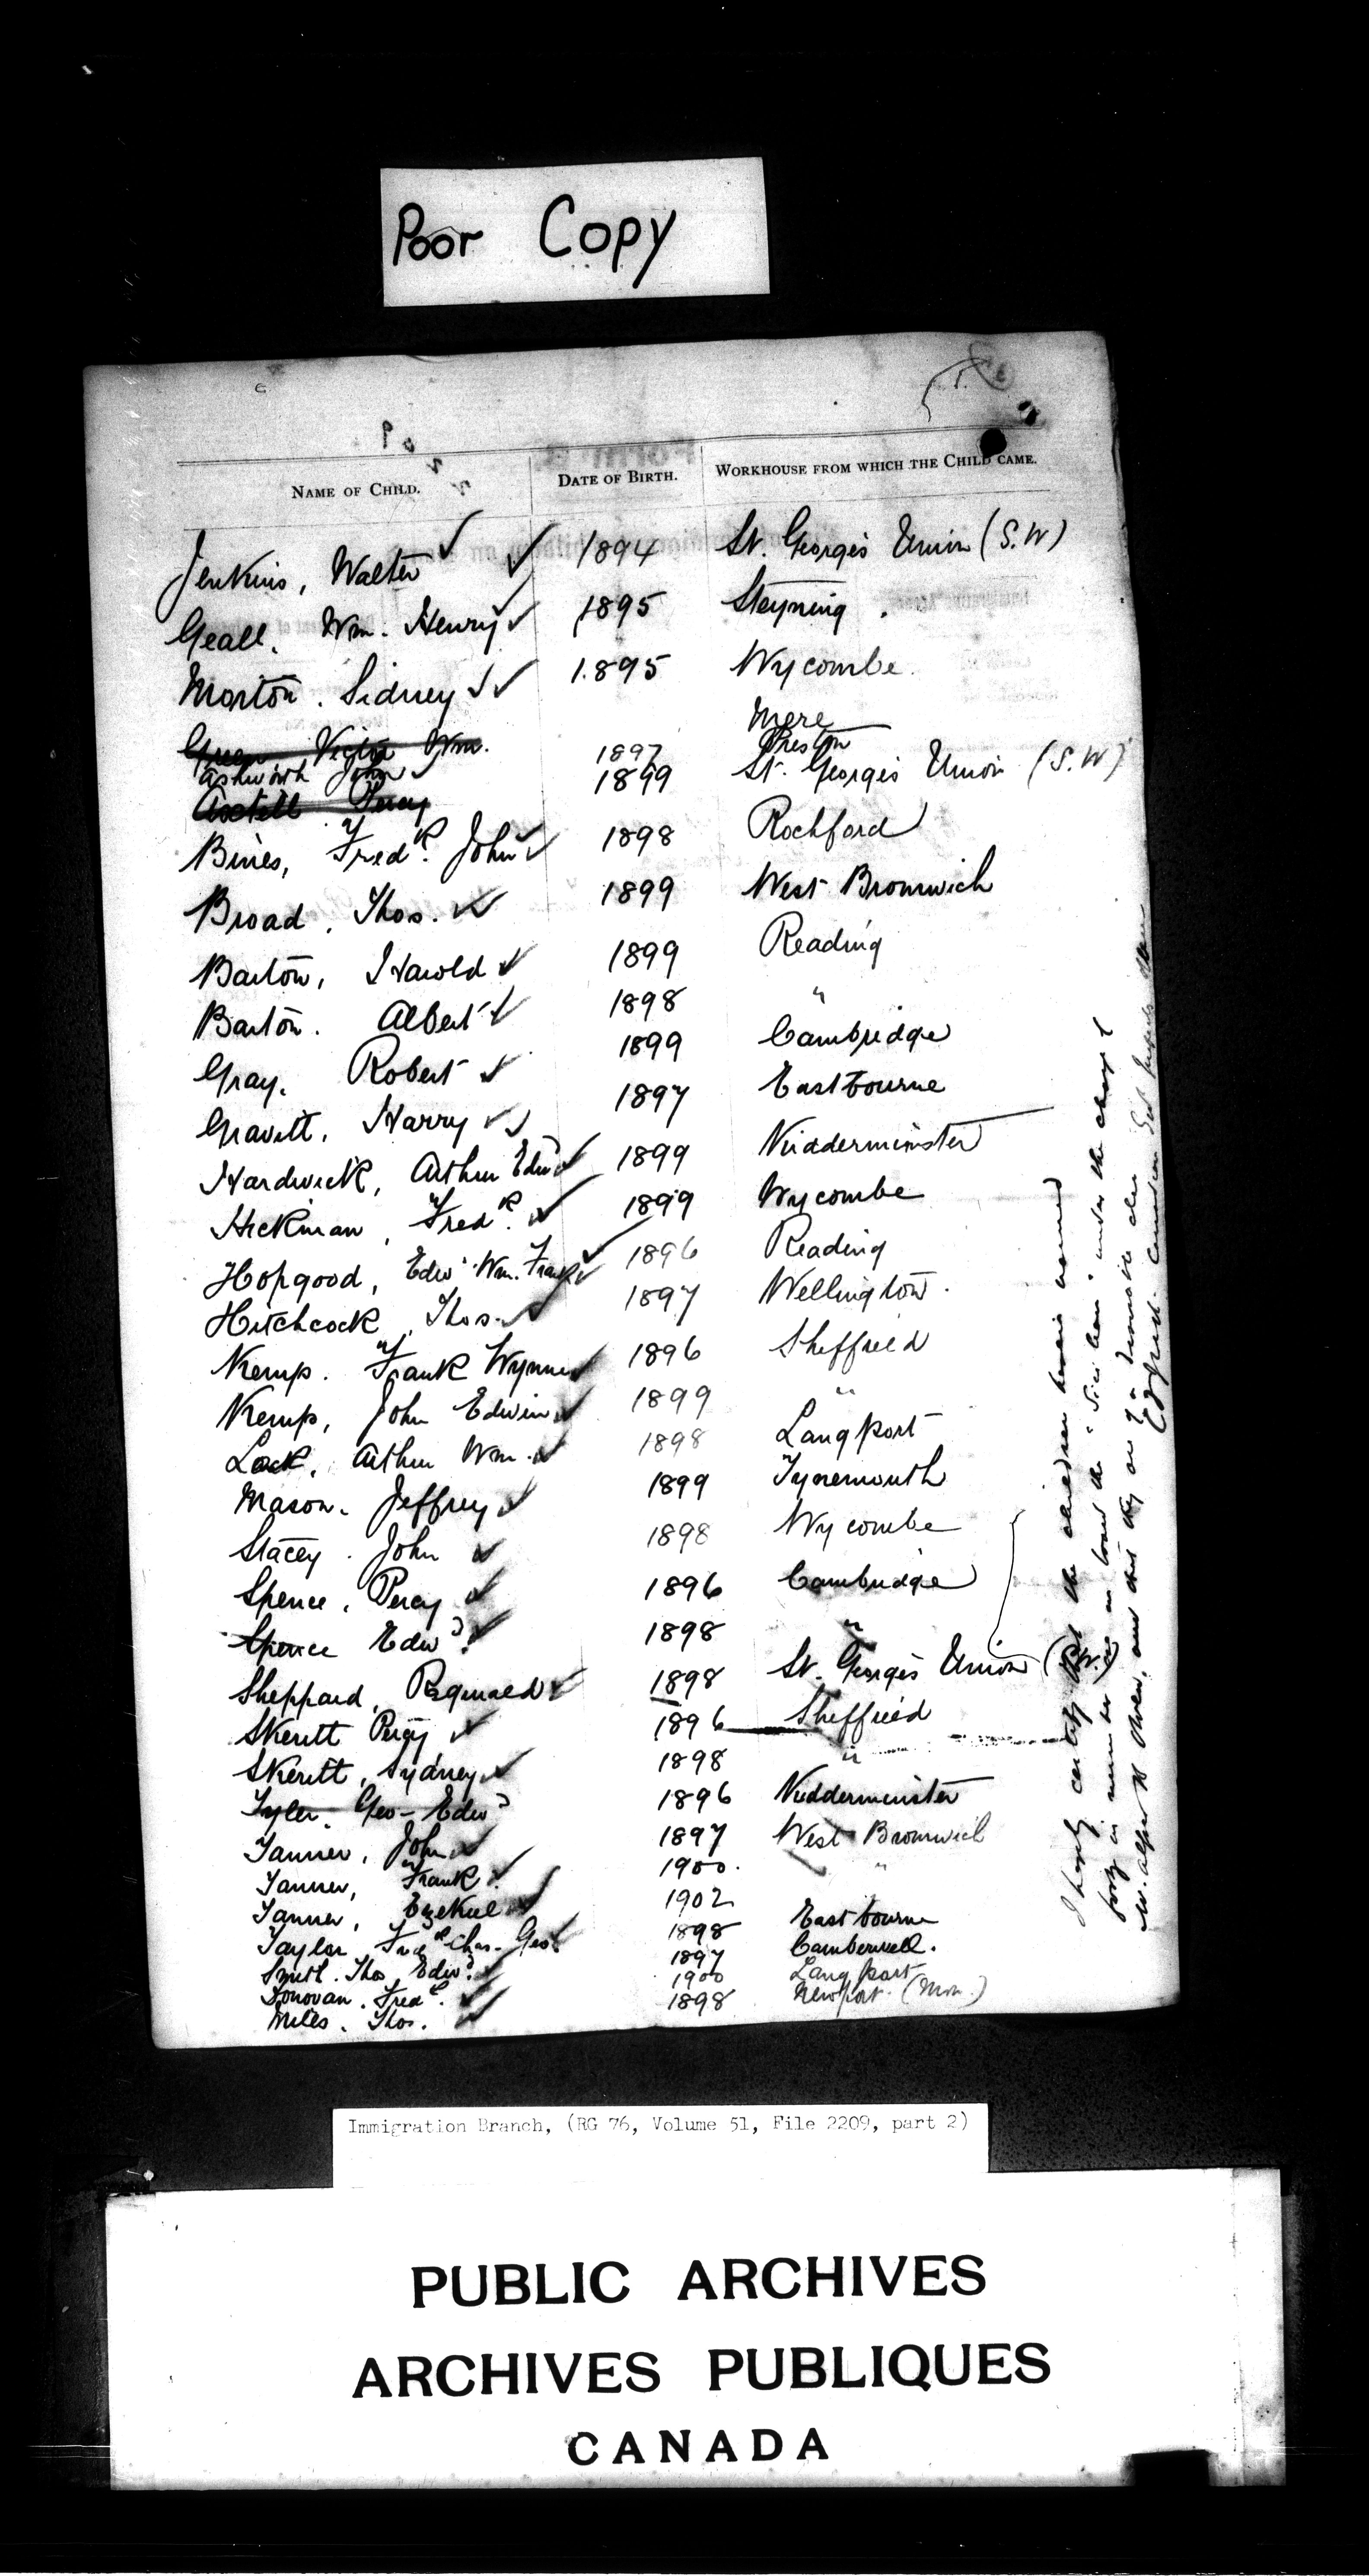 Poor Copy
NAME OF CHILD. DATE OF BIRTH. WORKHOUSE FROM WHICH THE CHILD CAME.
Jenkins, Walter 1894 St. George's Union (S.W)
Geall. Wm. Henry 1895 Steyning.
Morton. Sidney 1895 Wycombe.
Green Victor Wm. Mere
Ashworth John 1897 Preston
Axtell Percy 1899 St. George's Union (S.W)
Bines, Fredk. John 1898 Rochford
Broad, Thos. 1899 West Bromwich
Barton, Harold 1899 Reading
Barton. Albert 1898 "
Gray. Robert 1899 Cambridge
Gravitt, Harry 1897 Eastbourne
Hardwick, Arthur Edwd 1899 Kidderminster
Hickman, Fredk. 1899 Wycombe
Hopgood, Edwd Wm. Frank 1896 Reading
Hitchcock, Thos. 1897 Wellington.
Kemp. Frank Wynne 1896 Sheffield
Kemp, John Edwin 1899 "
Lock, Arthur Wm. 1898 Langport
Mason. Jeffrey 1899 Tynemouth
Stacey. John 1898 Wycombe
Spence, Percy 1896 Cambridge
Spence Edwd. 1898 "
Sheppard, Reginald 1898 St. George's Union (S.W.)
Skeritt Percy 1896 Sheffield
Skeritt, Sydney 1898 "
Tyler. Geo- Edwd 1896 Kidderminster
Tanner, John 1897 West Bromwich
Tanner, Frank. 1900. "
Tanner, Ezekiel 1902
Taylor Fredk Chas. Geo. 1898 Eastbourne
Smith. Thos Edwd. 1897 Camberwell.
Donovan. Fredk. 1900 Langport
Miles. Thos. 1898 Newport. (Mon.)
I hereby certify that the children herein named
in number are on board the under the charge of
Mr. Alfred and that they are of a
Immigration Branch, (RG 76, Volume 51, File 2209, part 2)
PUBLIC ARCHIVES
ARCHIVES PUBLIQUES
CANADA